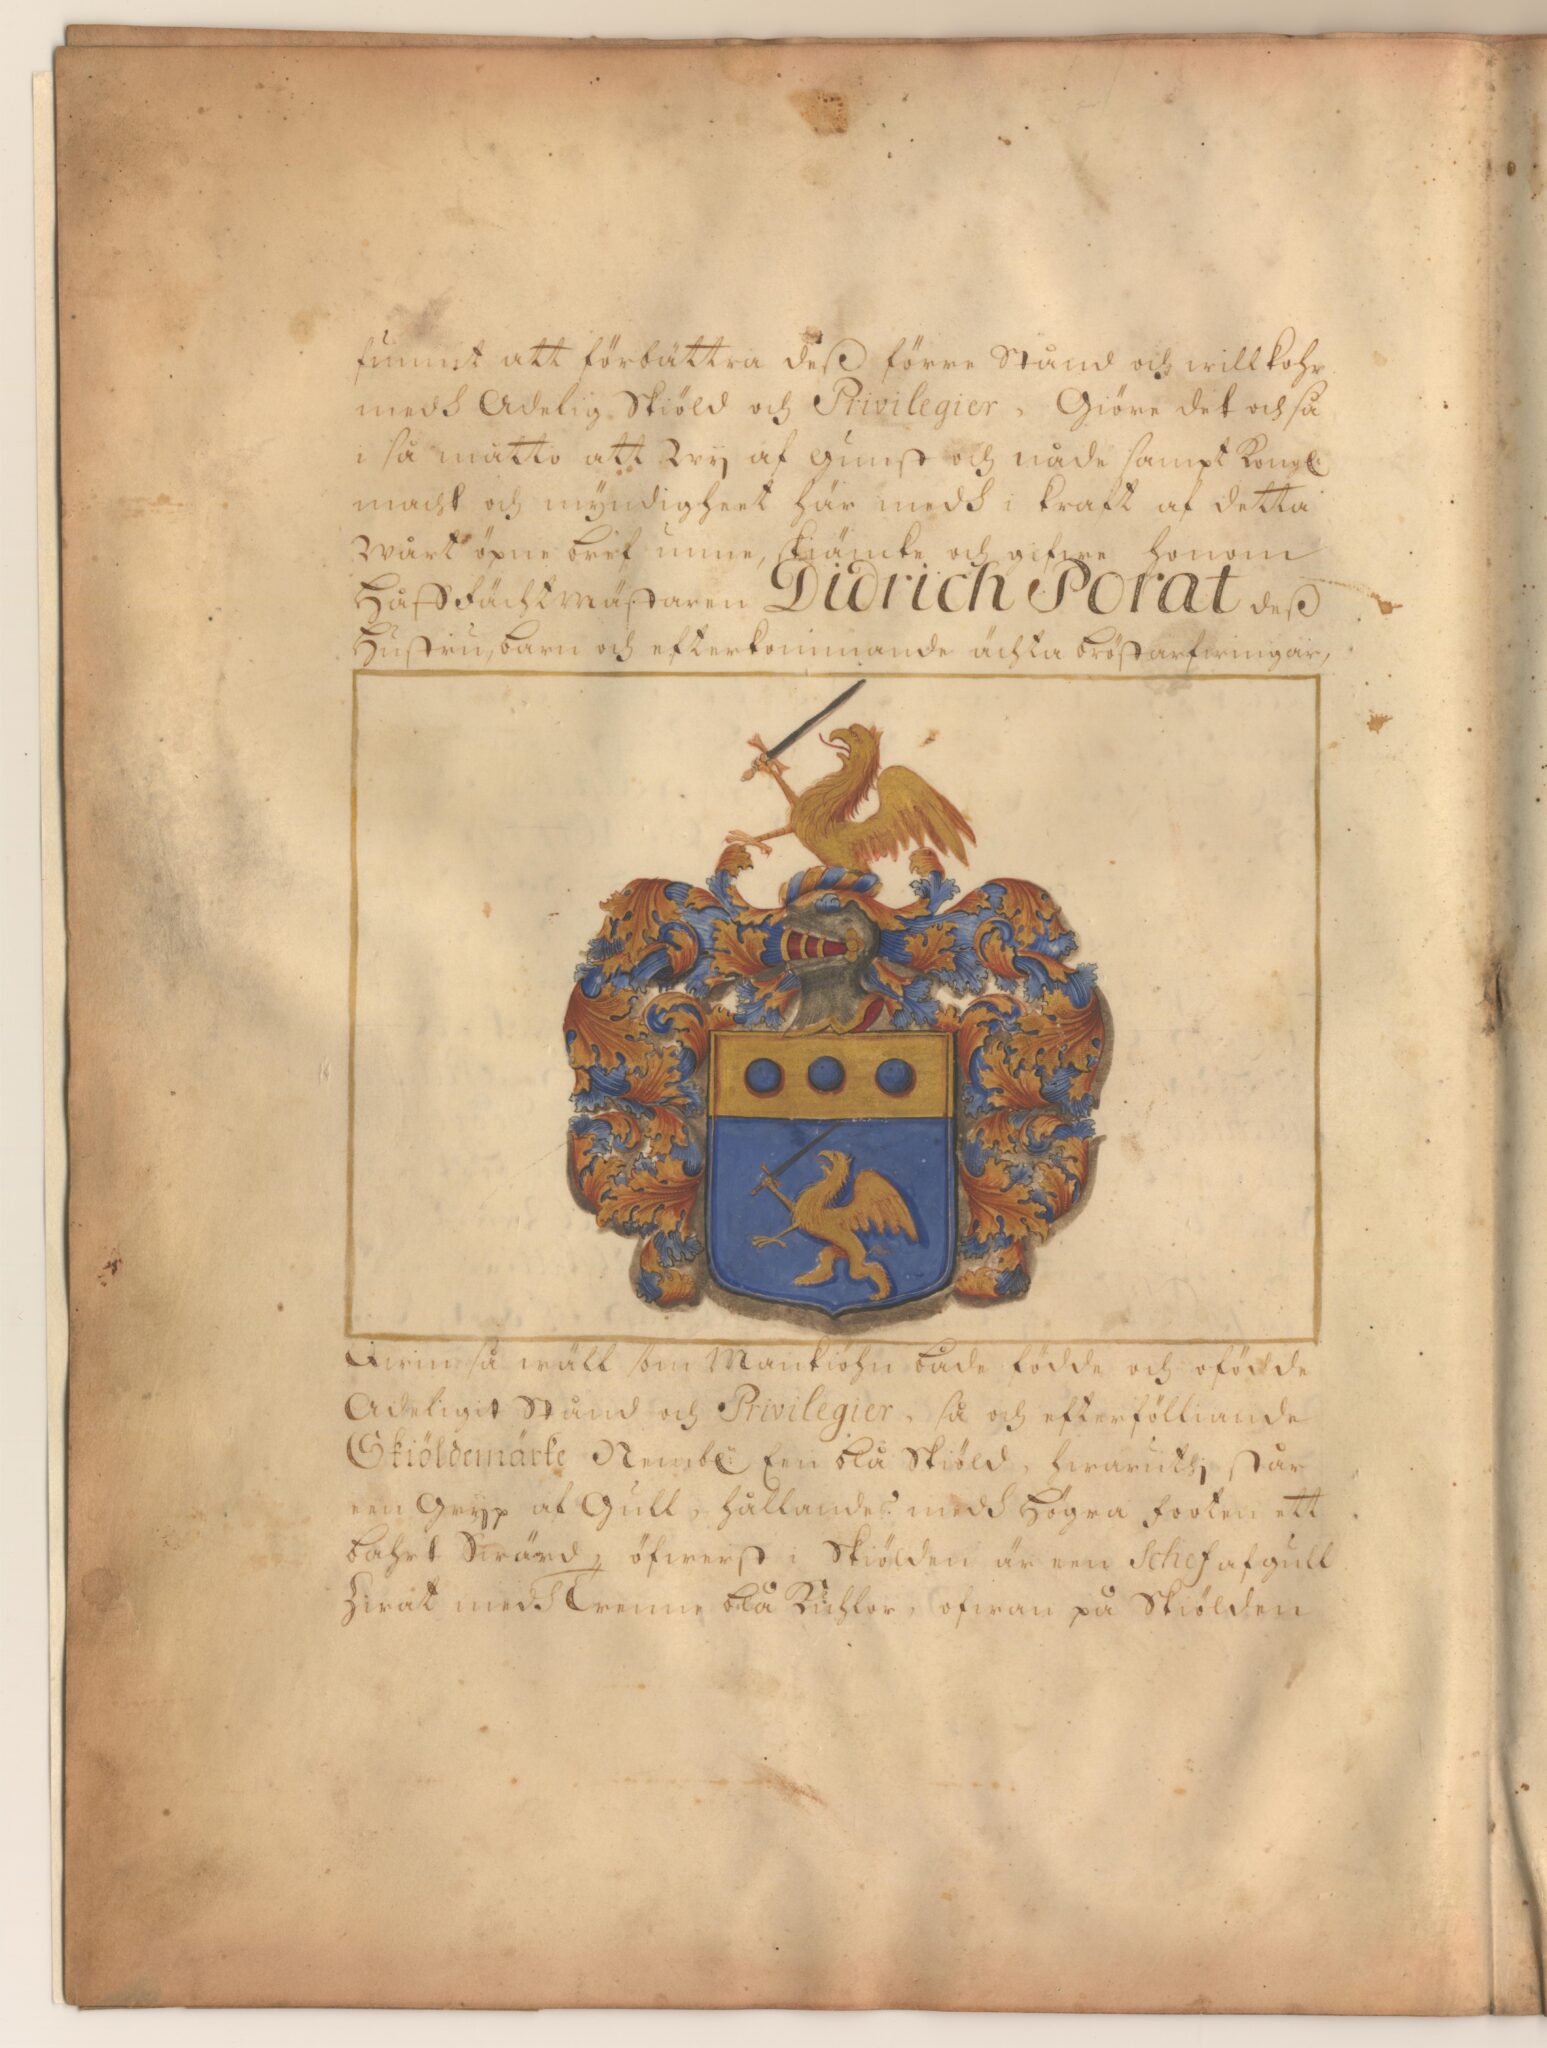 funnit att förbättra deß förre Stånd och willkohr
medh Adelig Skiöld och Privilegier, Giöre det och så
i så måtto att Wij af gunst och nåde sampt Kongl:
macht och myndigheet här medh i kraft af detta
Wårt öpne bref unne, skiänke och gifwe honom
Fächtmästaren Didrich Porat deß
Hustru, barn och efterkommande ächta bröstarfwingar,
Qwin så wäll som Mankiöhn både födde och ofödde
Adeligit Stånd och Privilegier, så och efterfölliande
Skiöldemärke Nembl: Een blå Skiöld, hwarutij står
een Gryp af Gull, hållandes medh högra footen ett
bahrt Swärd, öfwerst i Skiölden är een Schef af gull
Zirat medh Trenne blå Kuhlor, ofwan på Skiölden